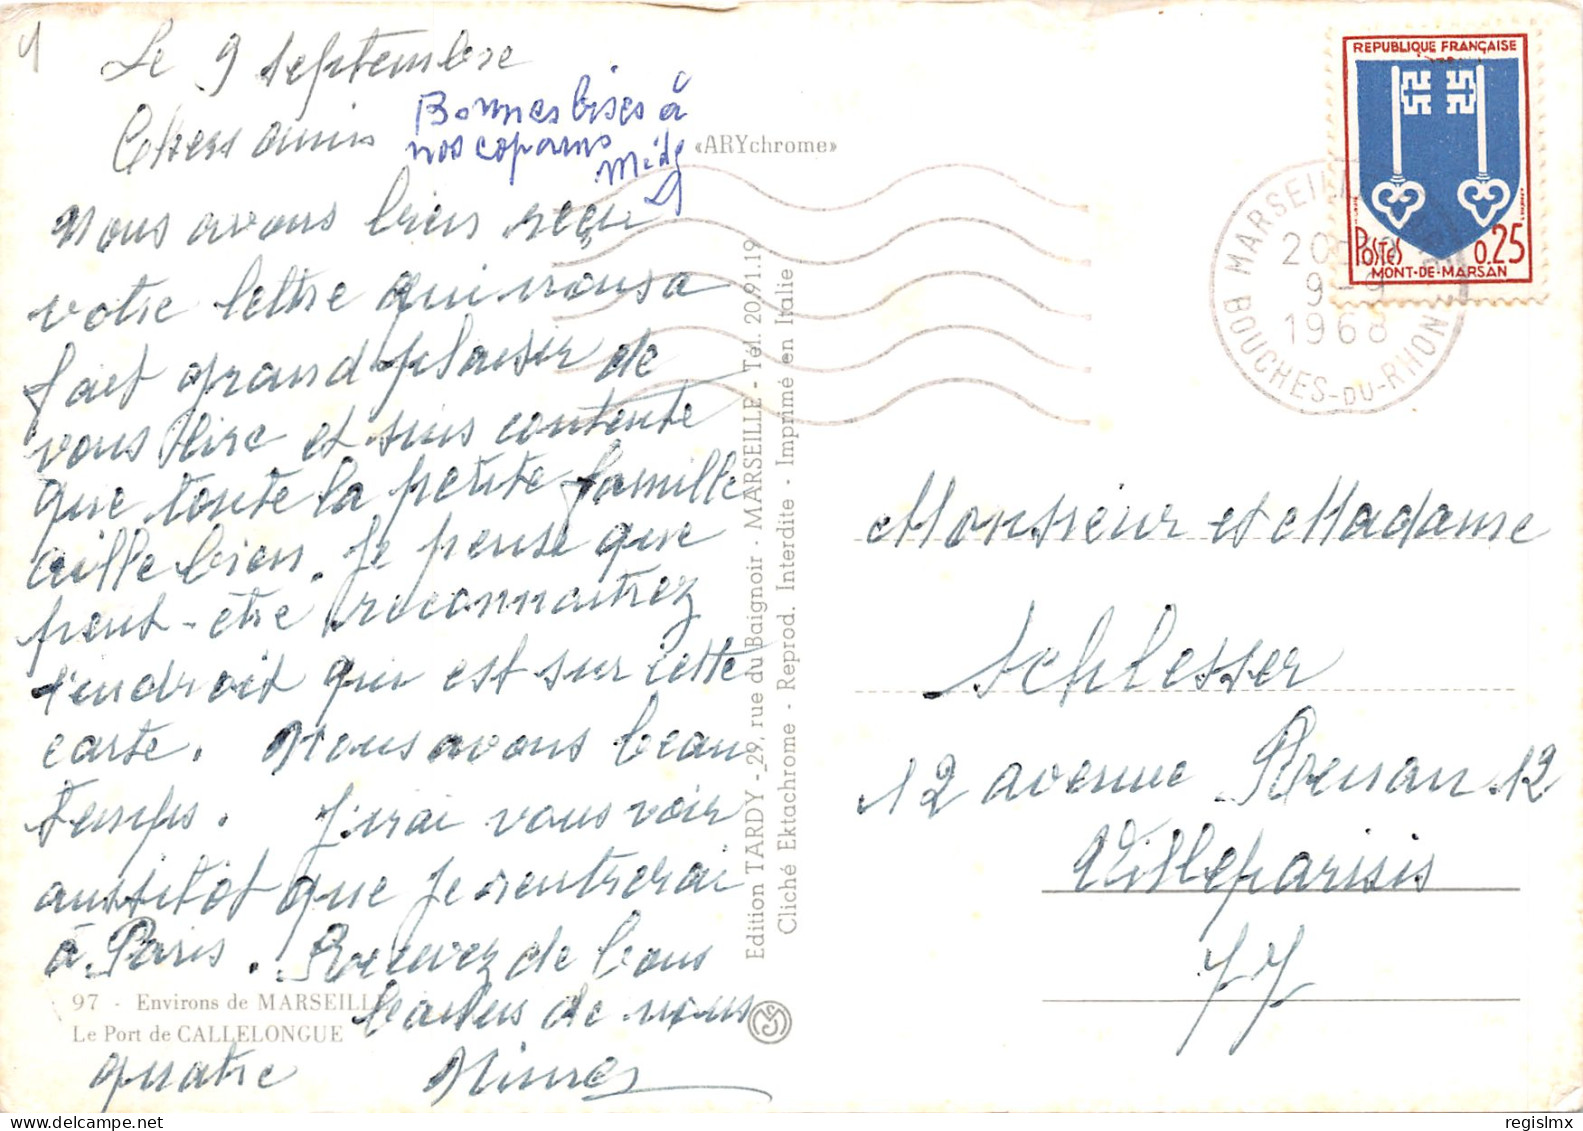 Le 9 septembre
Chers amis
Bonnes bises à
nos copains
Nous avons bien reçu
votre lettre qui nous a
fait grand plaisir de
vous lire et suis contente
que toute la petite famille
aille bien. Je pense que
peut-être reconnaitrez
l'endroit qui est sur cette
carte. Nous avons beau
temps. J'irai vous voir
aussitot que je rentrerai
à Paris. Recevez de bons
baisers de nous
quatre
97 - Environs de MARSEILLE
Le Port de CALLELONGUE
«ARYchrome»
Edition TARDY - 29, rue du Baignoir - MARSEILLE - Tél. 20.91.19
Cliché Ektachrome - Reprod. Interdite - Imprimé en Italie
REPUBLIQUE FRANÇAISE
POSTES 0.25
MONT-DE-MARSAN
MARSEILLE
20
9-9
1968
BOUCHES-DU-RHONE
Monsieur et Madame
Schlesser
12 avenue Renan 12
Villeparisis
77
delcampe.net
regislmx